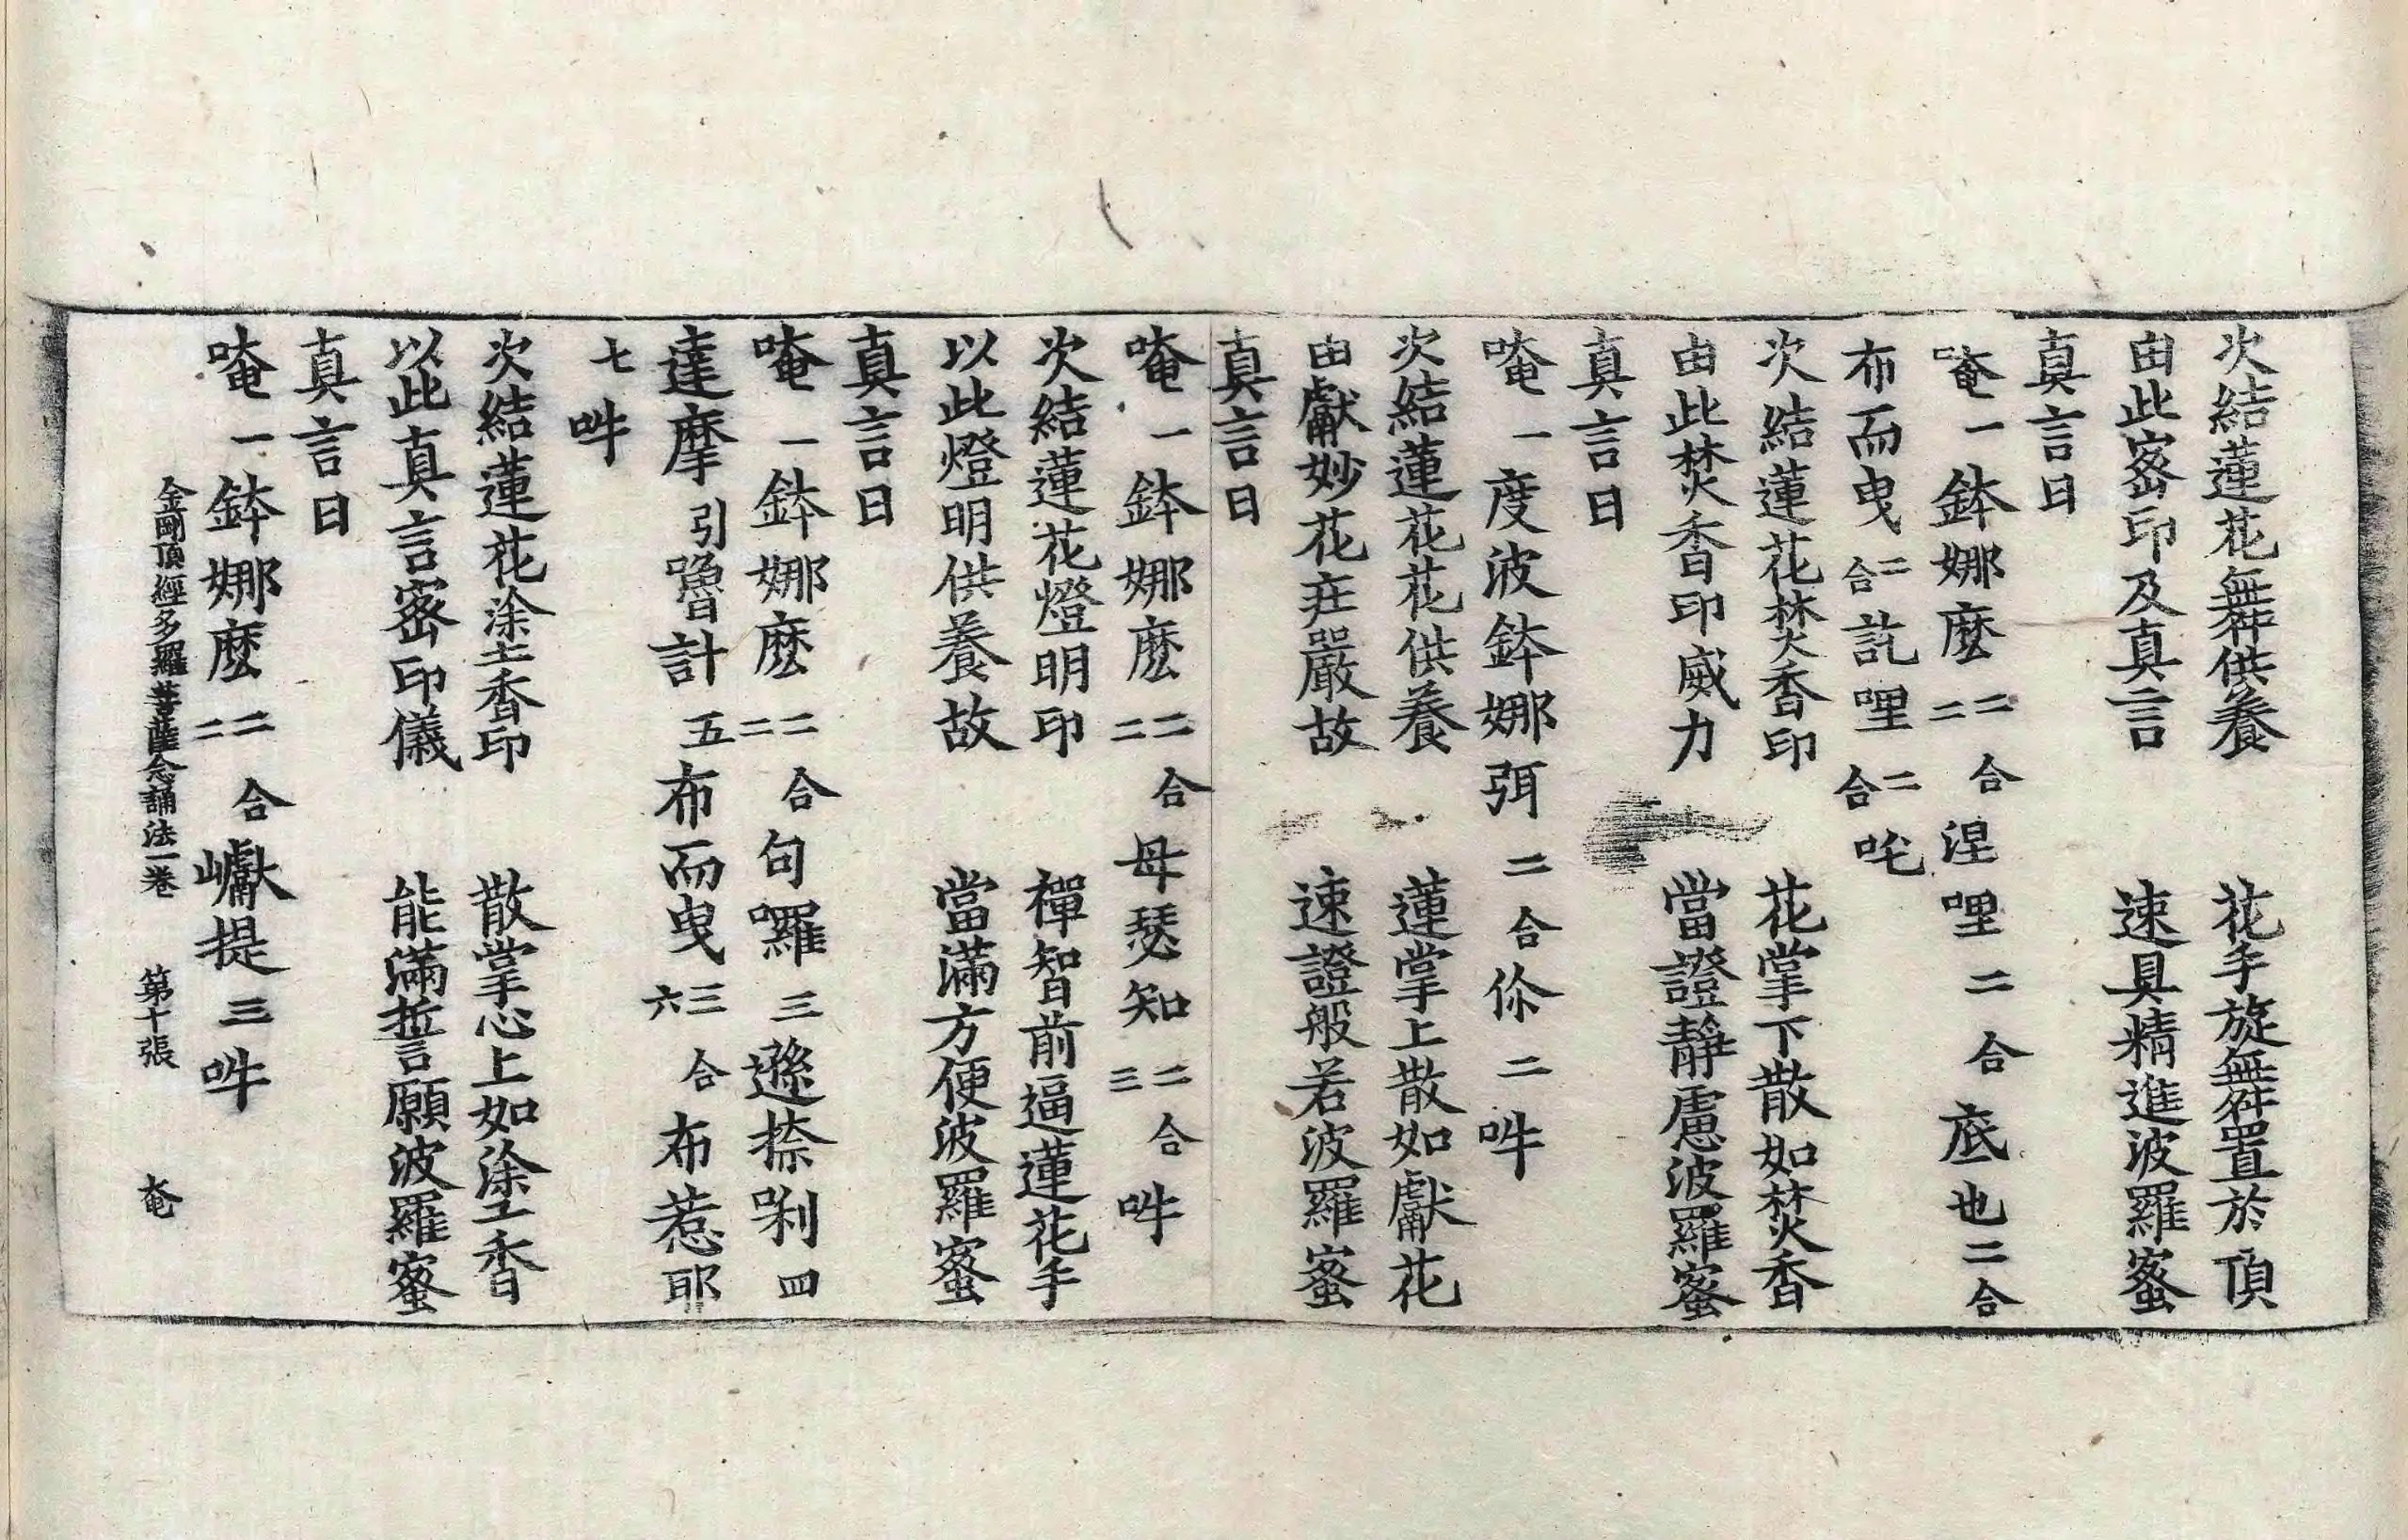 次結蓮花舞供養　花手旋舞置於頂
由此密印及真言　速具精進波羅蜜
真言曰
唵一鉢娜麽二二合涅哩二合底也二合
布而曳二合訖哩二合吒
次結蓮花焚香印　花掌下散如焚香
由此焚香印威力　當證靜慮波羅蜜
真言曰
唵一度波鉢娜弭二合你二吽
次結蓮花花供養　蓮掌上散如獻花
由獻妙花莊嚴故　速證般若波羅蜜
真言曰
唵一鉢娜麽二二合母瑟知二合三吽
次結蓮花燈明印　禪智前逼蓮花手
以此燈明供養故　當滿方便波羅蜜
真言曰
唵一鉢娜麽二二合句囉三遜捺唎四
達摩引嚕計五布而曳三合六布惹耶
七吽
次結蓮花塗香印　散掌心上如塗香
以此真言密印儀　能滿誓願波羅蜜
真言曰
唵一鉢娜麽二二合巘提三吽
金剛頂經多羅菩薩念誦法一卷　第十張　奄